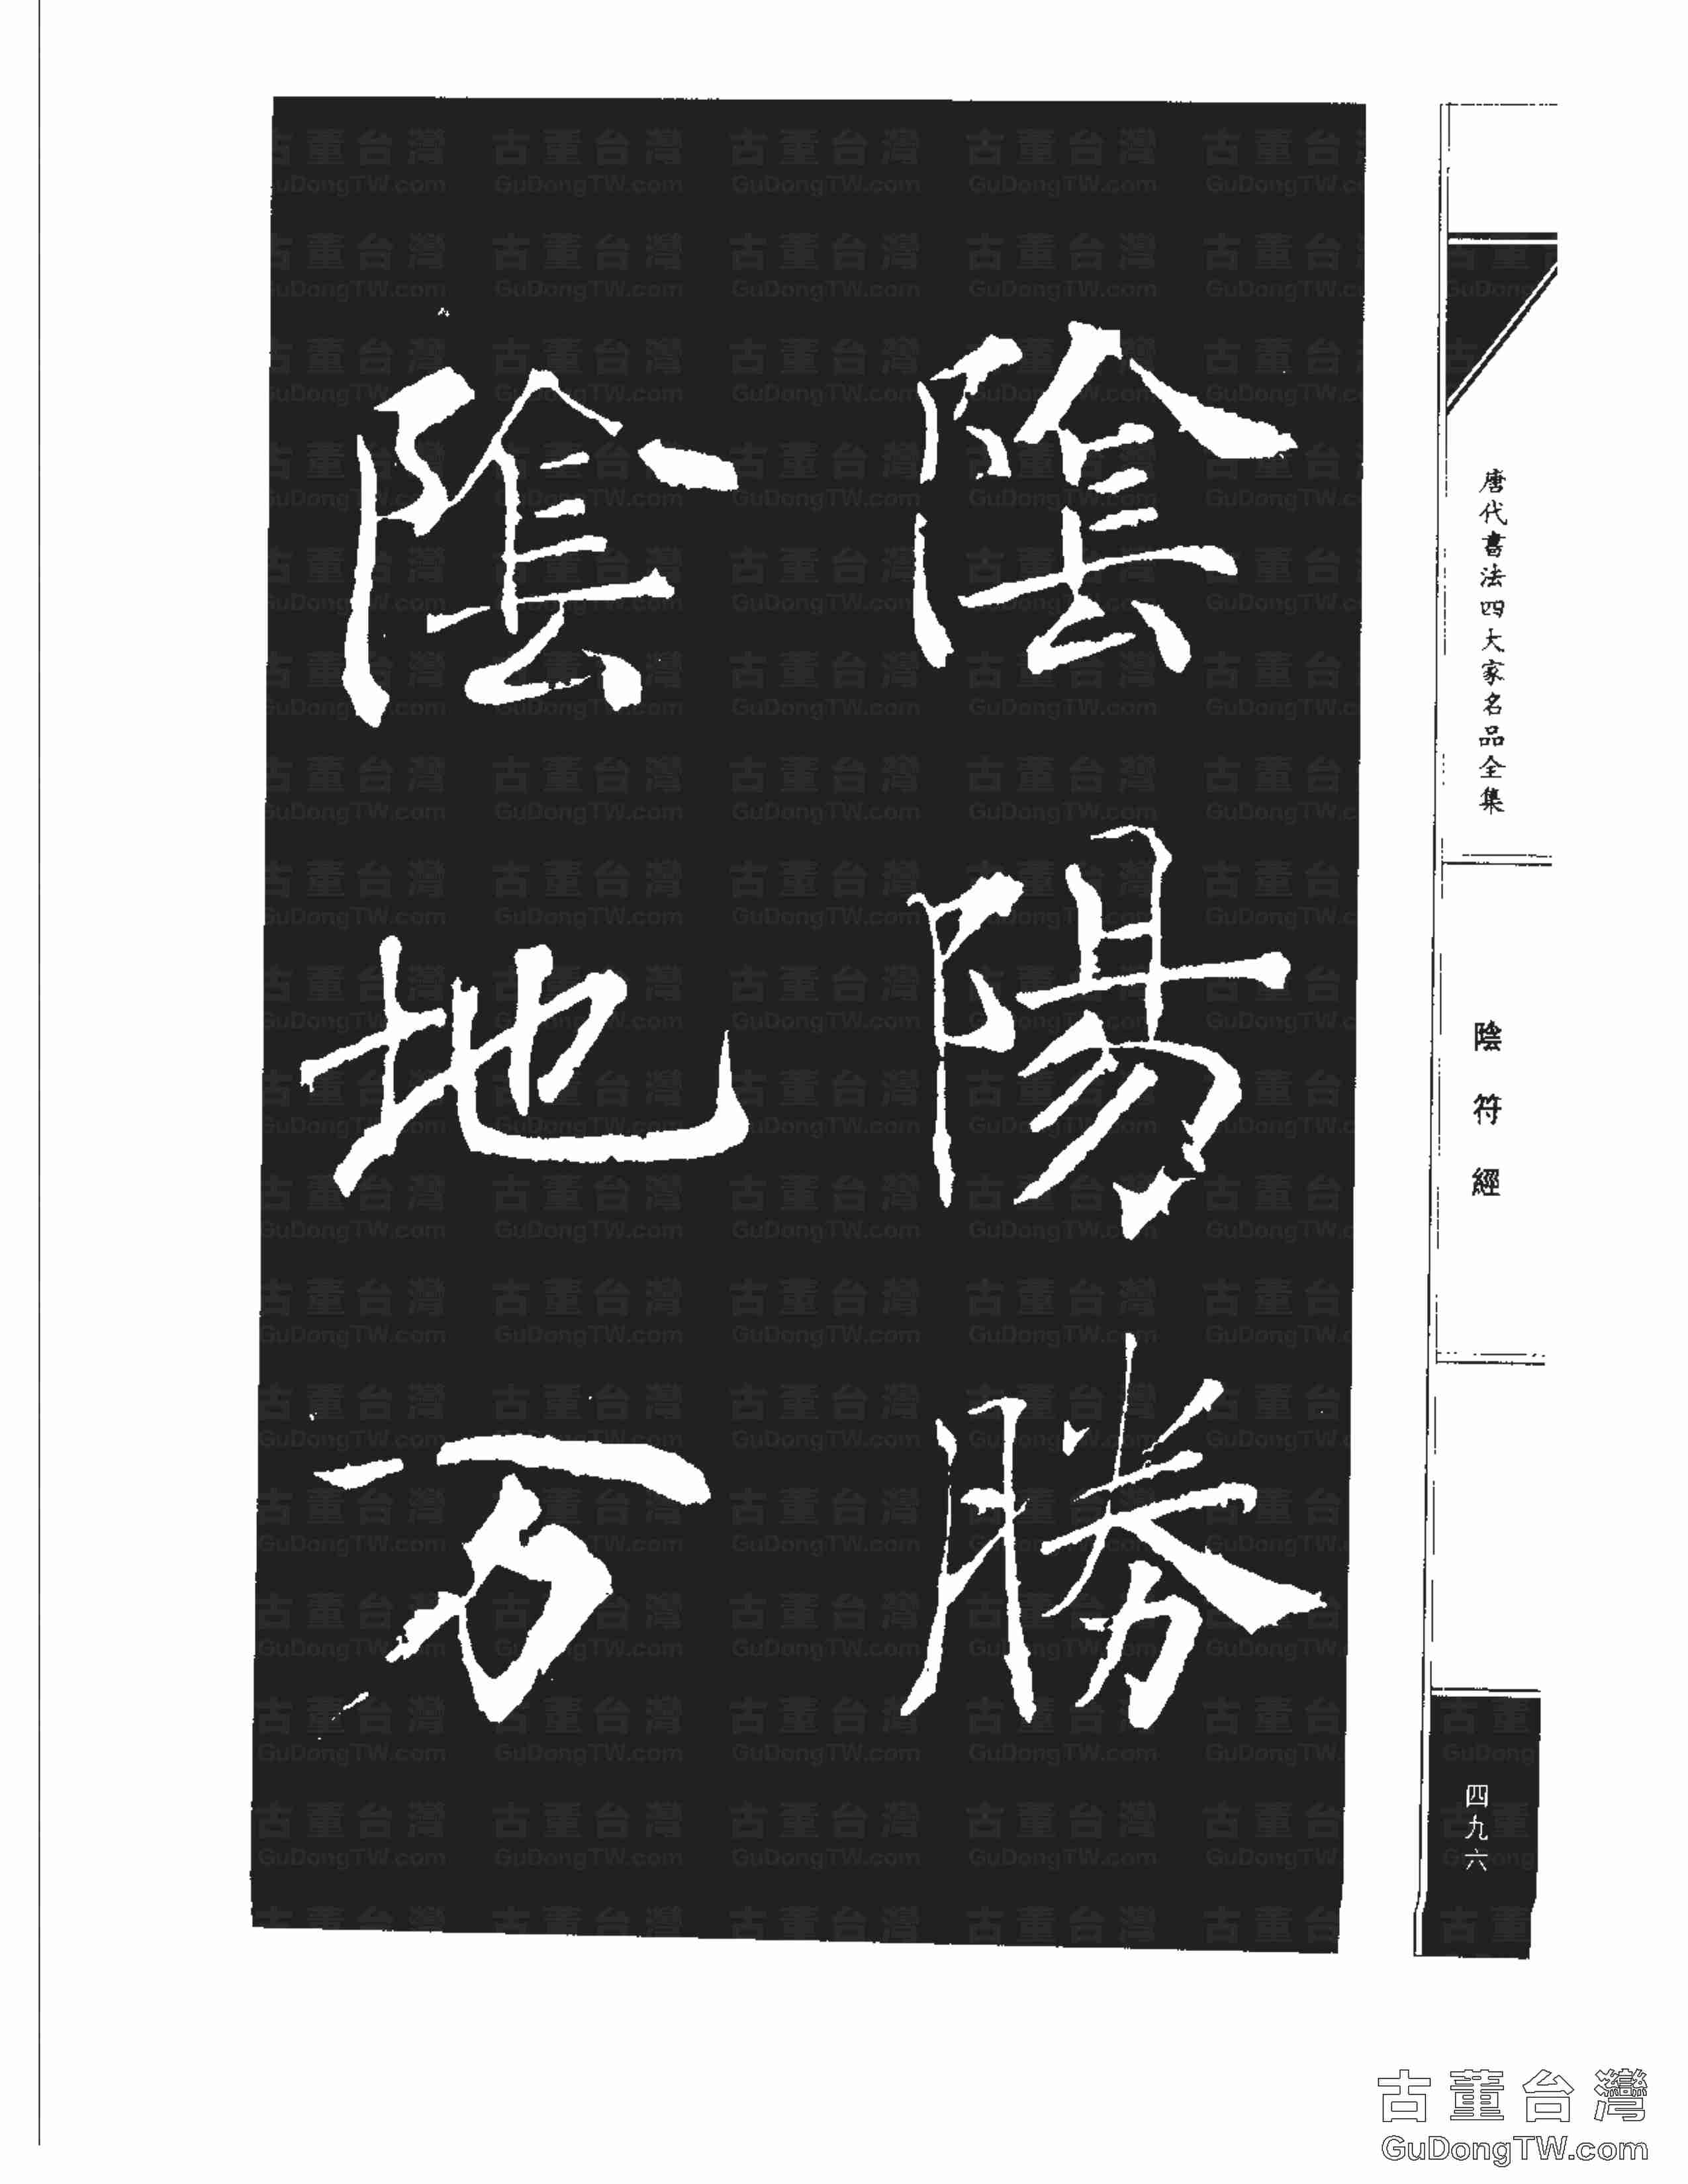 陰陽勝
陰地万
唐代書法四大家名品全集
陰符經
四九六
古董台灣
GuDongTW.com